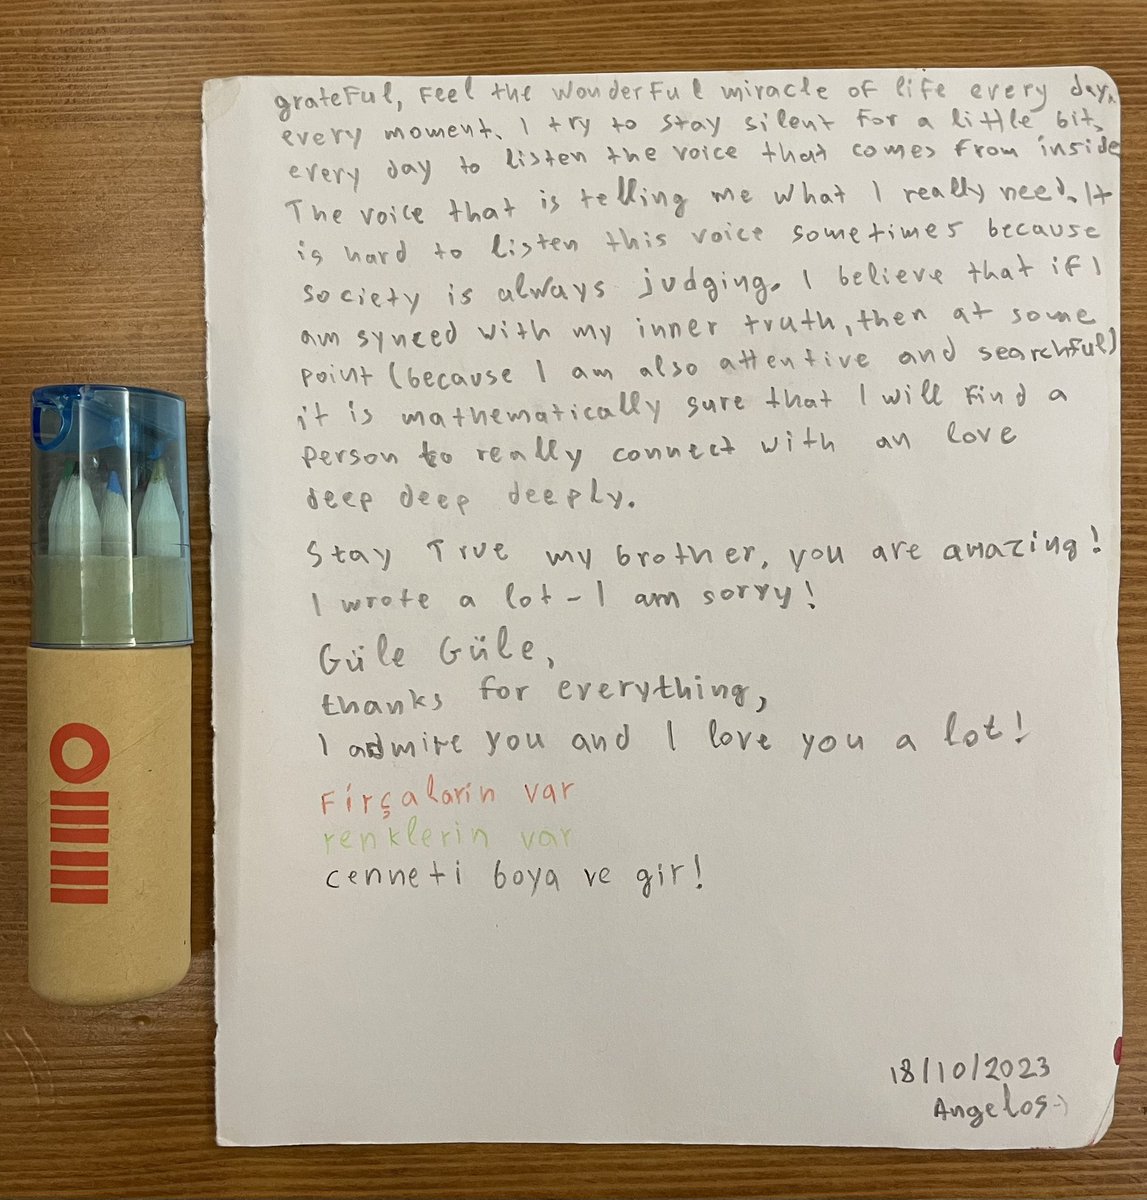 grateful, feel the wonderful miracle of life every day,
every moment. I try to stay silent for a little bit,
every day to listen the voice that comes from inside
The voice that is telling me what I really need. It
is hard to listen this voice sometimes because
society is always judging. I believe that if I
am synced with my inner truth, then at some
point (because I am also attentive and searchful)
it is mathematically sure that I will find a
person to really connect with an love
deep deep deeply.
Stay True my brother, you are amazing!
I wrote a lot - I am sorry!
Güle Güle,
thanks for everything,
I admire you and I love you a lot!
Firçalarin var
renklerin var
cenneti boya ve gir!
18/10/2023
Angelos :)